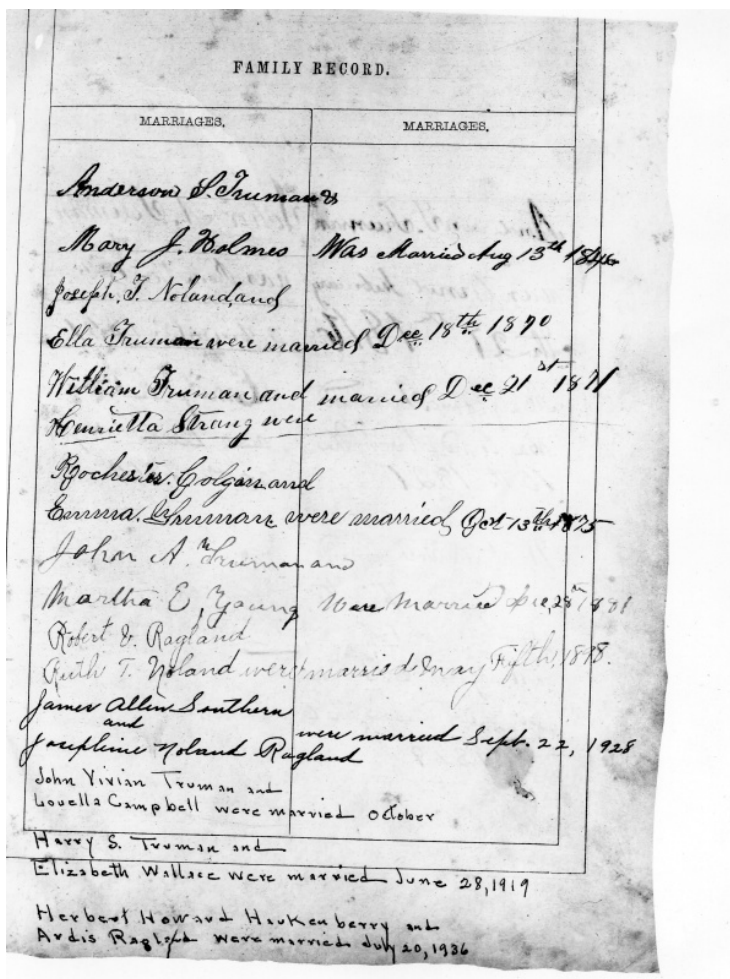 FAMILY RECORD.
MARRIAGES. MARRIAGES.
Anderson S. Truman &
Mary J. Holmes Was Married Aug 13th 1846
Joseph. T. Noland, and
Ella Truman were married Dec 18th 1870
William Truman and married Dec 21st 1871
Henrietta Strang were
Rochester. Colgin, and
Emma. Truman were married Oct 13th 1875
John A. Truman and
Martha E, Young Were Married Dec, 28th 1881
Robert V. Ragland
Ruth T. Noland were married May Fifth, 1898.
James Allen Southern
and were married Sept. 22, 1928
Josephine Noland Ragland
John Vivian Truman and
Louella Campbell were married October
Harry S. Truman and
Elizabeth Wallace were married June 28, 1919
Herbert Howard Haukenberry and
Ardis Ragland were married July 20, 1936